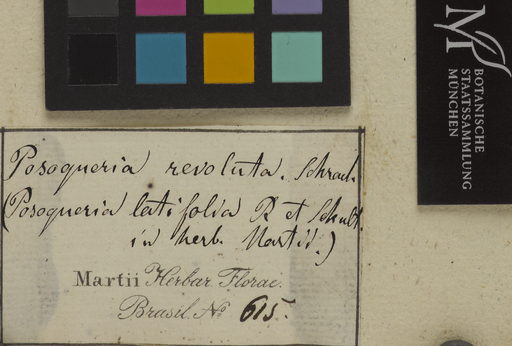 Posoqueria revoluta. Schrad.
(Posoqueria latifolia R et Schult.
in herb. Martii.)
Martii Herbar. Florae.
Brasil. No 615.
M
BOTANISCHE
STAATSSAMMLUNG
MÜNCHEN